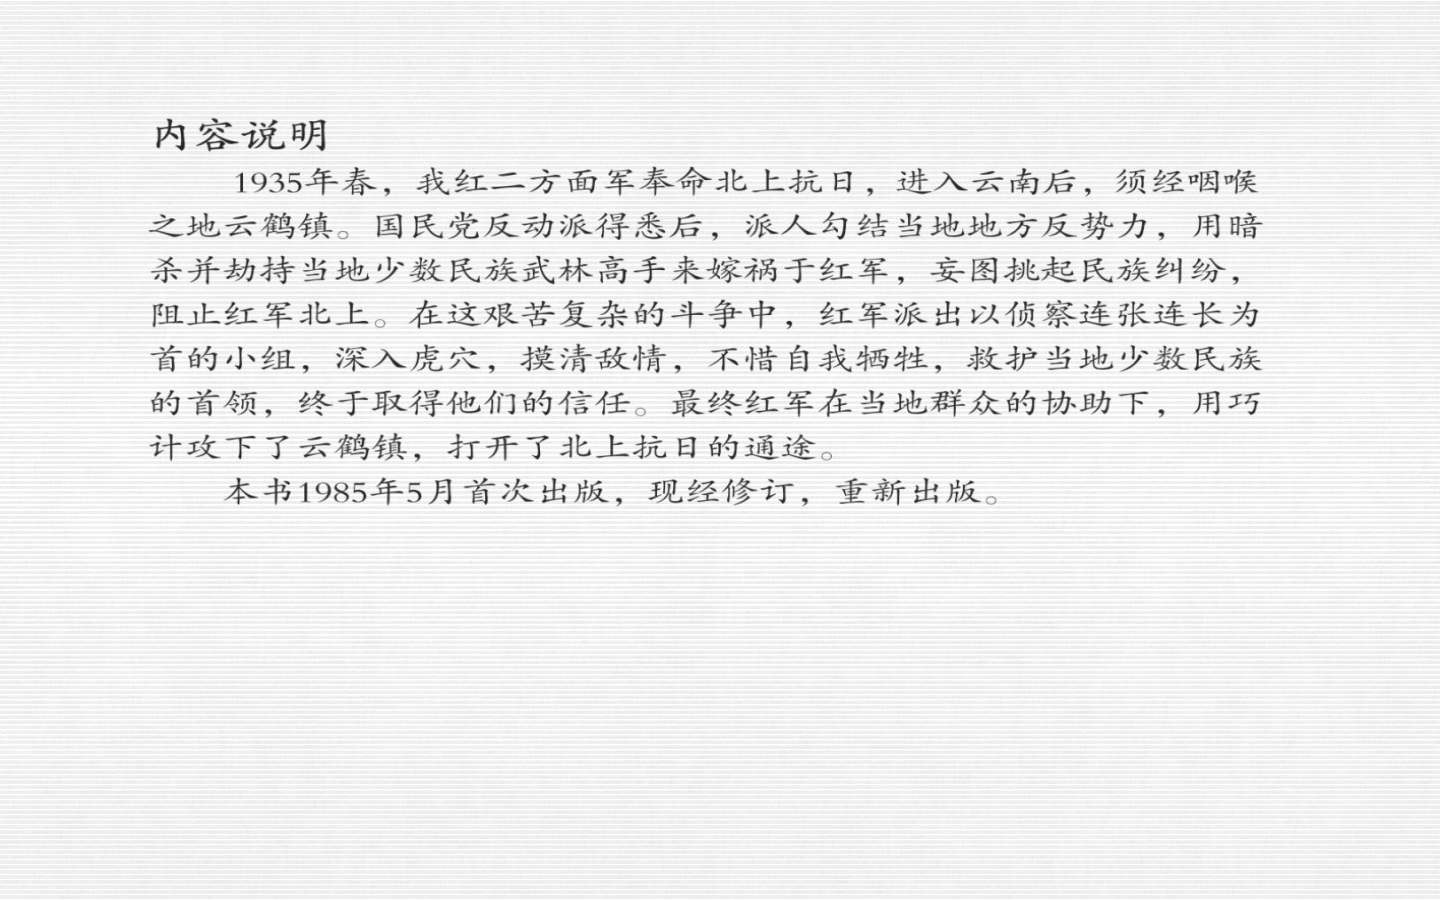 内容说明
1935年春，我红二方面军奉命北上抗日，进入云南后，须经咽喉
之地云鹤镇。国民党反动派得悉后，派人勾结当地地方反势力，用暗
杀并劫持当地少数民族武林高手来嫁祸于红军，妄图挑起民族纠纷，
阻止红军北上。在这艰苦复杂的斗争中，红军派出以侦察连张连长为
首的小组，深入虎穴，摸清敌情，不惜自我牺牲，救护当地少数民族
的首领，终于取得他们的信任。最终红军在当地群众的协助下，用巧
计攻下了云鹤镇，打开了北上抗日的通途。
本书1985年5月首次出版，现经修订，重新出版。